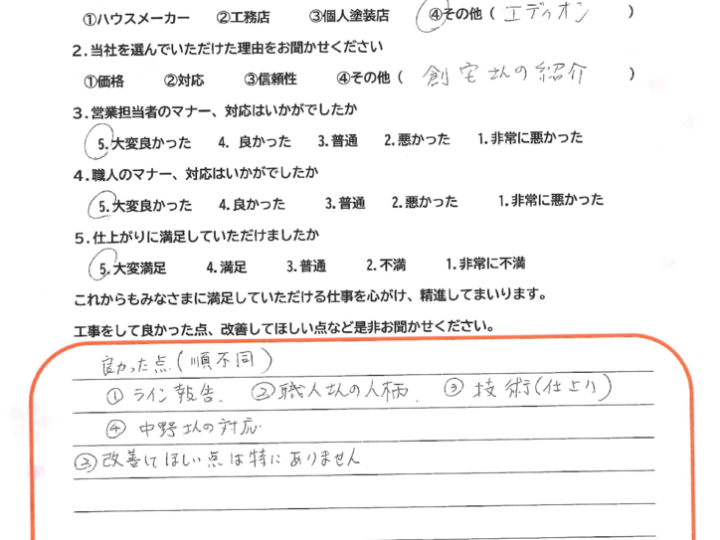 ①ハウスメーカー ②工務店 ③個人塗装店 ④その他（ エディオン ）
２．当社を選んでいただけた理由をお聞かせください
①価格 ②対応 ③信頼性 ④その他（ 創宅さんの紹介 ）
３．営業担当者のマナー、対応はいかがでしたか
5．大変良かった 4．良かった 3．普通 2．悪かった 1．非常に悪かった
４．職人のマナー、対応はいかがでしたか
5．大変良かった 4．良かった 3．普通 2．悪かった 1．非常に悪かった
５．仕上がりに満足していただけましたか
5．大変満足 4．満足 3．普通 2．不満 1．非常に不満
これからもみなさまに満足していただける仕事を心がけ、精進してまいります。
工事をして良かった点、改善してほしい点など是非お聞かせください。
良かった点（順不同）
①ライン報告. ②職人さんの人柄. ③技術（仕上り）
④中野さんの対応
③改善してほしい点は特にありません